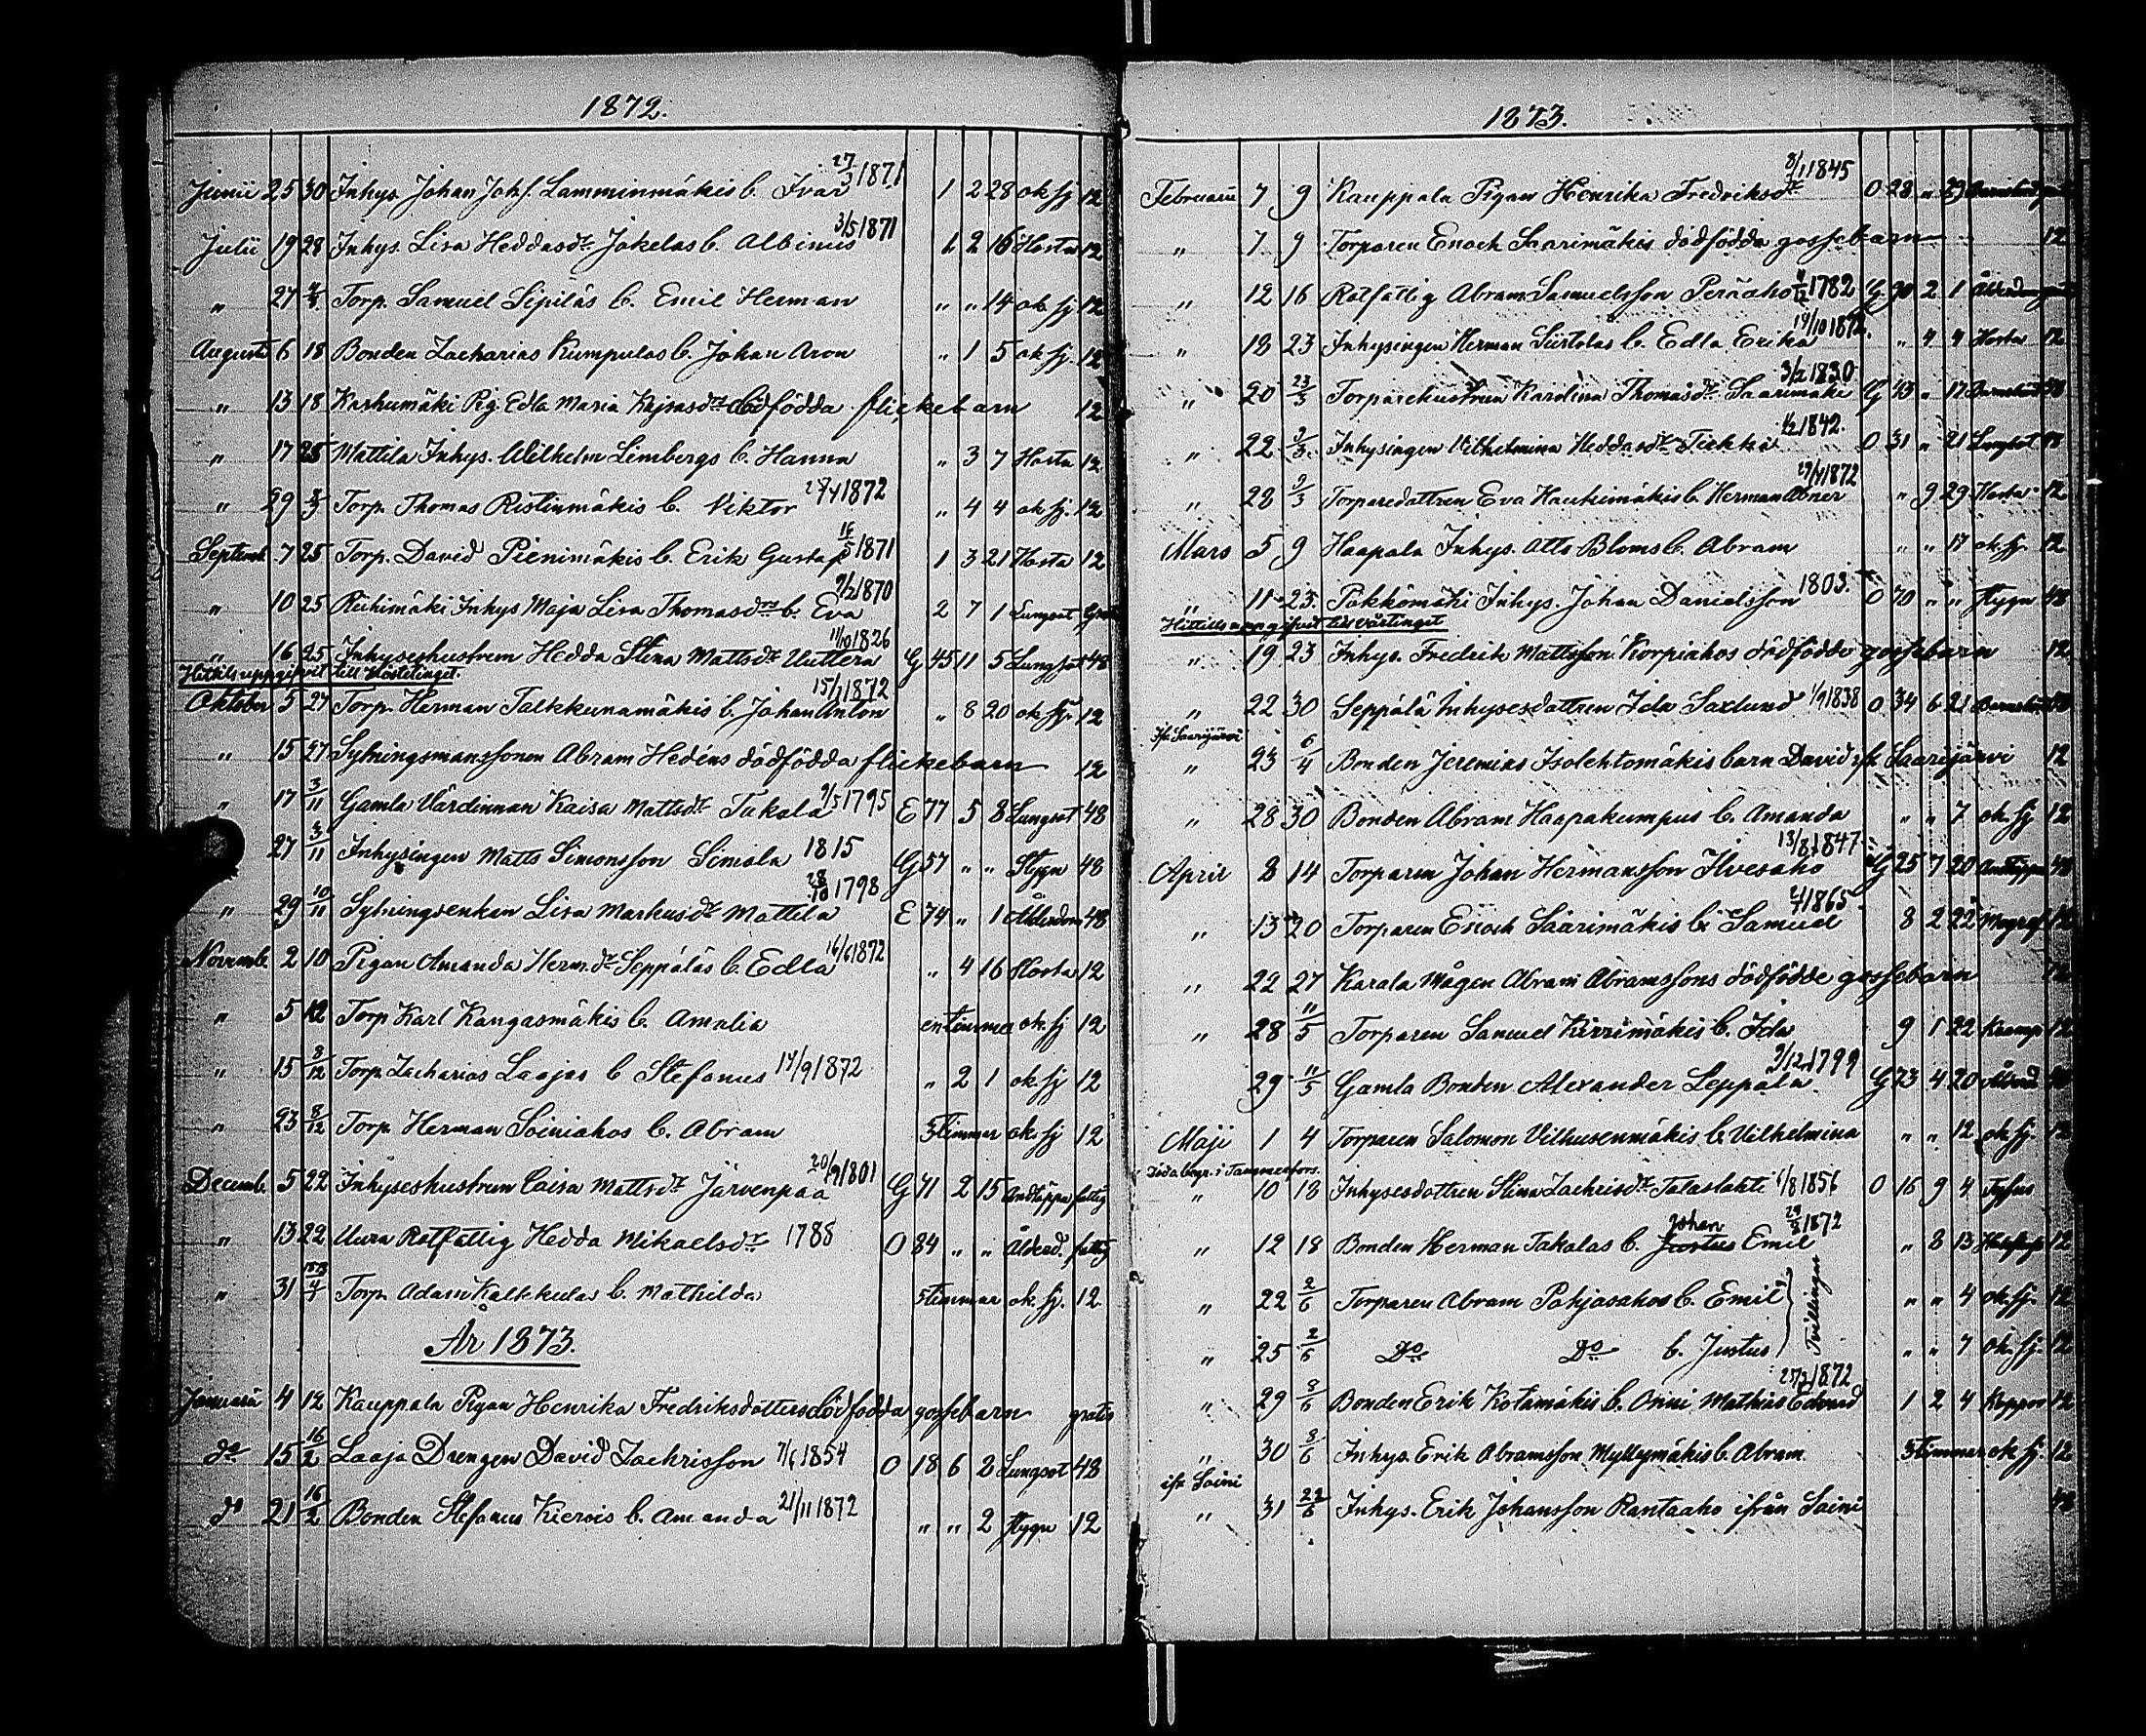 1872.
Junii 25 30 Inhys. Johan Johs. Lamminmäkis b. Ivar 27/3 1871 1 2 28 ok sj 12
Julii 19 28 Inhys. Lisa Heddasdr. Jokelas b. Albinus 3/5 1871 1 2 16 Hosta 12
" 27 4/8 Torp. Samuel Sipiläs b. Emil Herman " " 14 ok sj 12
Augusti 6 18 Bonden Zacharias Kumpulas b. Johan Aron " 1 5 ok sj. 12
" 13 18 Karhumäki Pig. Edla Maria Kajsasdrs dödfödda flickebarn 12
" 17 25 Mattila Inhys. Wilhelm Limbergs b. Hanna " 3 7 Hosta 12
" 29 8/9 Torp. Thomas Ristinmäkis b. Viktor 1872 " 4 4 ok sj. 12
Septemb. 7 25 Torp. David Pienimäkis b. Erik Gustaf 16/5 1871 1 3 21 Hosta 12
" 10 25 Riihimäki Inhys Maja Lisa Thomasdrs b. Eva 9/2 1870 2 7 1 Lungsot Gratis
" 16 25 Inhyseshustrun Hedda Stina Mattsdr. Uuttera 11/10 1826 G 45 11 5 Lungsot 48
Hittils uppgifvit till Höstetinget.
Oktober 5 27 Torp. Herman Talkkunamäkis b. Johan Anton 15/1 1872 " 8 20 ok sj. 12
" 15 27 Sytningsmanssonen Abram Hedéns dödfödda flickebarn 12
" 17 3/11 Gamla Värdinnan Kaisa Mattsdr Takala 9/5 1795 E 77 5 8 Lungsot 48
27 3/11 Inhysingen Matts Simonsson Simola 1815 G 57 " " Stygn 48
" 29 10/11 Sytningsenkan Lisa Markusdr Mattila 28/10 1798 E 74 " 1 Ålderdom 48
Novemb. 2 10 Pigan Amanda Herm.dr Seppäläs b. Edla 16/6 1872 " 4 16 Hosta 12
" 5 12 Torp Karl Kangasmäkis b. Amalia en timma ok. sj 12
" 15 8/12 Torp. Zacharias Laajas b Stefanus 14/9 1872 " 2 1 ok. sj 12
" 23 8/12 Torp. Herman Soiniahos b. Abram 5 timmar ok. sj 12
Decemb. 5 22 Inhyseshustrun Caisa Mattsdr Järvenpää 20/9 1801 G 71 2 15 Andtäppa fattig
" 13 22 Uura Rotfattig Hedda Mikaelsdr 1788 O 84 " " Ålderd. fattig
" 31 Torp. Adam Kalkkulas b. Mathilda 5 timmar ok. sj. 12
År 1873.
Januarii 4 12 Kauppala Pigan Henrika Fredriksdotters dödfödda gossebarn gratis
do 15 16/2 Laaja Drengen David Zachrisson 7/6 1854 O 18 6 2 Lungsot 48
do 21 16/2 Bonden Stefanus Kierois b. Amanda 21/11 1872 " " 2 Stygn 12
1873.
Februarii 7 9 Kauppala Pigan Henrika Fredriksdr 8/1 1845 O 28 " 29
" 7 9 Torparen Enoch Saarimäkis dödfödda gossebarn 12
" 12 16 Rotfattig Abram Samuelsson Peräaho 11/12 1782 G 90 2 1
" 18 23 Inhysingen Herman Siirtolas b. Edla Erika 14/10 1872. " 4 4 Hosta 12
" 20 23/3 Torparehustrun Karolina Thomasdr. Saarimäki 3/2 1830 G 43 " 17 Barnsbörd 48
" 22 9/3 Inhysingen Vilhelmina Heddasdr Tiekka 1/2 1842. O 31 " 21 Lungsot 48
" 28 9/3 Torparedottren Eva Hautimäkis b. Herman Abner 1872 " 9 29 Hosta 12
Mars 5 9 Haapala Inhys. Atts Bloms b. Abram " " 17 ok. sj. 12
" 11 23. Pökkömäki Inhys. Johan Danielsson 1803. O 70 " " Stygn 48
Hittills uppgifvit till vårtinget
" 19 23 Inhys. Fredrik Mattsson Korpiahos dödfödde gossebarn 12
" 22 30 Seppälä Inhysesdottren Ida Saxlund 1/9 1838 O 34 6 21 Barnsbörd 48
ifr. Saarijärvi
" 23 6/4 Bonden Jeremias Isolehtomäkis barn David ifr. Saarijärvi 12
" 28 30 Bonden Abram Haapakumpus b. Amanda " " 7 ok. sj 12
April 8 14 Torparen Johan Hermansson Ilvesaho 13/8 1847 G 25 7 20 Andtäppa 48
" 13 20 Torparen Enoch Saarimäkis b. Samuel 1865 8 2 22 12
" 22 27 Karala Mågen Abram Abramssons dödfödde gossebarn 12
" 28 11/5 Torparen Samuel Kirrimäkis b. Ida 9 1 22 Kramp 12
" 29 11/5 Gamla Bonden Alexander Leppälä 9/12 1799 G 73 4 20 Ålderd 48
Maji 1 4 Torparen Salomon Vilhusenmäkis b. Vilhelmina " " 12 ok. sj. 12
Död o begr. i Tammerfors.
" 10 18 Inhysesdottren Stina Zachrisdr Talaslahti 6/8 1856 O 16 9 4 Tyfus
" 12 18 Bonden Herman Takalas b. Justus Johan Emil 29/8 1872 " 8 13 12
" 22 2/6 Torparen Abram Pohjasahos b. Emil " " 4 ok. sj. 12
Tvillingar
" 25 2/6 Do Do b. Justus " " 7 ok. sj. 12
" 29 8/6 Bonden Erik Kotamäkis b. Onni Mathias Edvard 25/3 1872 1 2 4 Koppor 12
" 30 8/6 Inhys. Erik Abramsson Myllymäkis b. Abram. 3 timmar ok sj. 12
ifr Soini
" 31 22/6 Inhys. Erik Johansson Rantaaho ifrån Soini 48